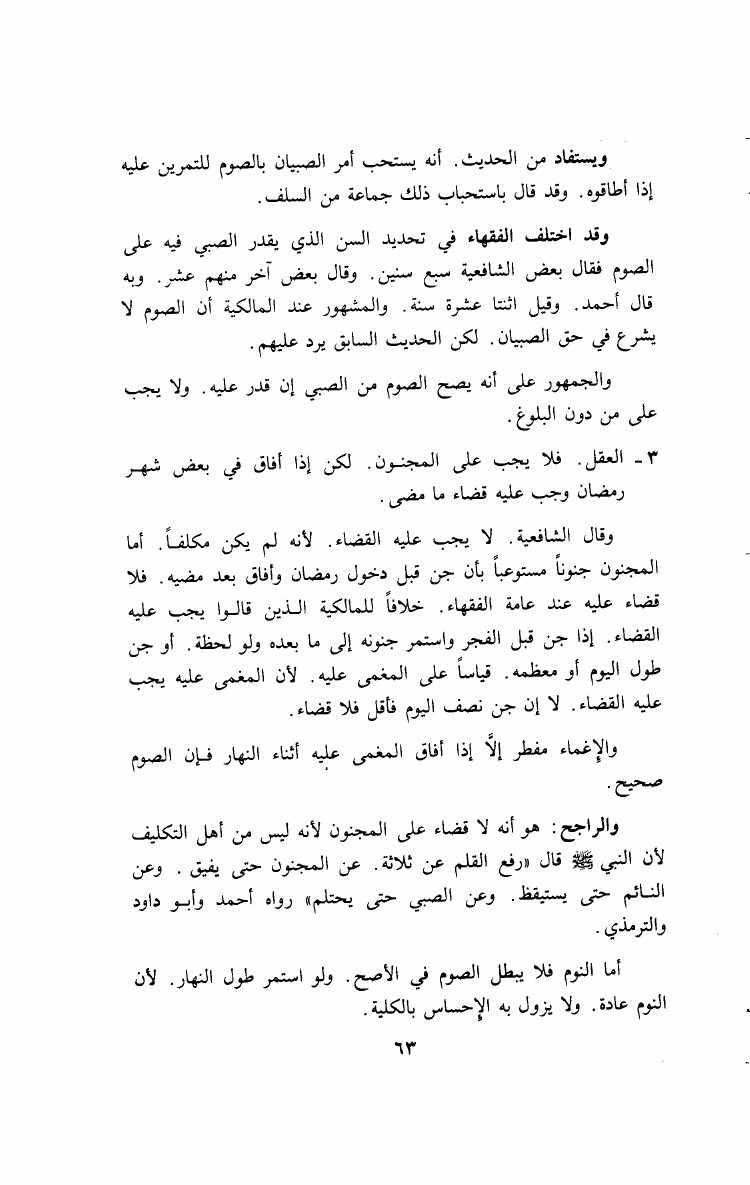 ويستفاد من الحديث. أنه يستحب أمر الصبيان بالصوم للتمرين عليه
إذا أطاقوه. وقد قال باستحباب ذلك جماعة من السلف.
وقد اختلف الفقهاء في تحديد السن الذي يقدر الصبي فيه على
الصوم فقال بعض الشافعية سبع سنين. وقال بعض آخر منهم عشر. وبه
قال أحمد. وقيل اثنتا عشرة سنة. والمشهور عند المالكية أن الصوم لا
يشرع في حق الصبيان. لكن الحديث السابق يرد عليهم.
والجمهور على أنه يصح الصوم من الصبي إن قدر عليه. ولا يجب
على من دون البلوغ.
٣ - العقل. فلا يجب على المجنـون. لكن إذا أفاق في بعض شهـر
رمضان وجب عليه قضاء ما مضى.
وقال الشافعية. لا يجب عليه القضاء. لأنه لم يكن مكلفـاً. أما
المجنون جنوناً مستوعباً بأن جن قبل دخول رمضان وأفاق بعد مضيه. فلا
قضاء عليه عند عامة الفقهاء. خلافاً للمالكية الـذين قالـوا يجب عليه
القضاء. إذا جن قبل الفجر واستمر جنونه إلى ما بعده ولو لحظة. أو جن
طول اليوم أو معظمه. قياساً على المغمى عليه. لأن المغمى عليه يجب
عليه القضاء. لا إن جن نصف اليوم فأقل فلا قضاء.
والإغماء مفطر إلَّا إذا أفاق المغمى عليه أثناء النهار فـإن الصوم
صحيح.
والراجح: هو أنه لا قضاء على المجنون لأنه ليس من أهل التكليف
لأن النبي ﷺ قال «رفع القلم عن ثلاثة. عن المجنون حتى يفيق. وعن
النـائم حتى يستيقظ. وعن الصبي حتى يحتلم» رواه أحمد وأبـو داود
والترمذي.
أما النوم فلا يبطل الصوم في الأصح. ولو استمر طول النهار. لأن
النوم عادة. ولا يزول به الإحساس بالكلية.
٦٣